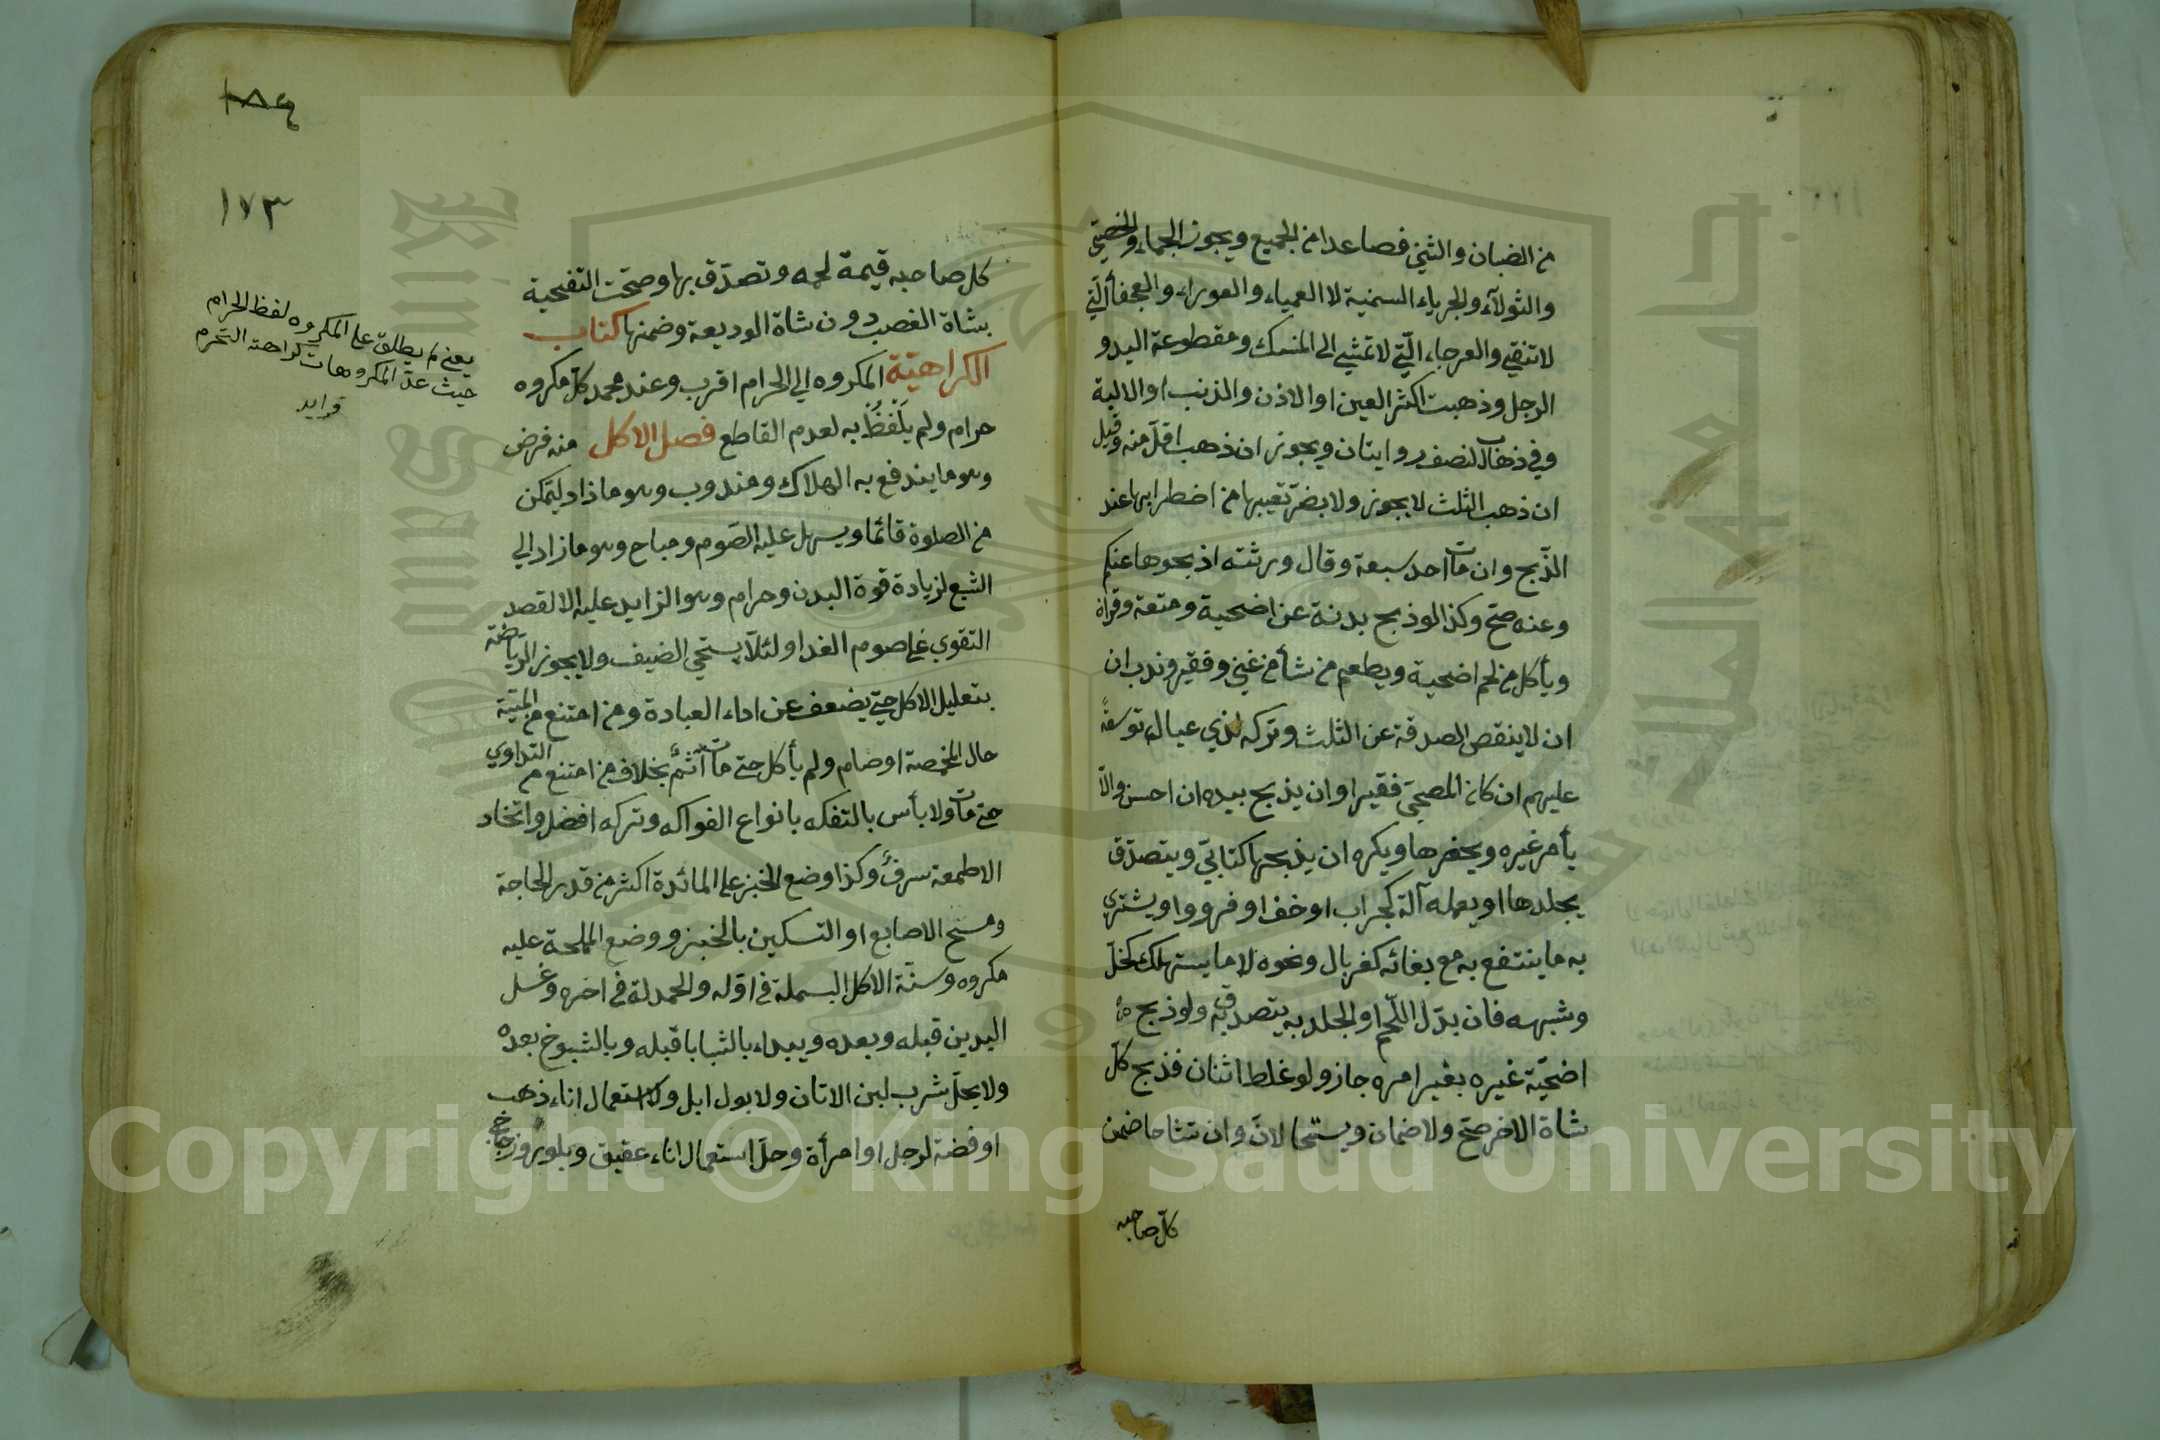 من الضبان والثني فصاعدا من الجميع ويجوز الجماء والخصي
والثولاء والجرباء السمنية لا العمياء والعوراء والعجفاء التي
لا تنقي والعرجاء الّتي لا تمشي الى المنسك ومقطوعة اليد و
الرجل وذهبت اكثر العين او الاذن والذنب او الالية
وفي ذهاب النصف روايتان ويجوز ان ذهب اقلّ منه وقيل
ان ذهب الثلث لا يجوز ولا يضرّ تعيبها من اضطرابها عند
الذّبح وان مات احد سبعة وقال ورثته اذبحوها عنكم
وعنه صحّ وكذا لو ذبح بدنة عن اضحية ومتعة وقران
ويأكل من لحم اضحية ويطعم من شأ من غني وفقير وندب ان
ان لا ينقص الصدقة عن الثلث وتركه لذي عيال توسعةً
عليهم ان كان المضحّي فقيرا وان يذبح بيده ان احسن والّا
يأمر غيره ويحضرها ويكره ان يذبحها كتابيّ ويتصدّق
بجلدها او يعمله آلة كجراب او خف او فرو او يشتري
به ما ينتفع به مع بقائه كغربال ونحوه لا ما يستهلك كخلّ
وشبهه فان بدّل اللّحم او الجلد به يتصدق به ولو ذبح
اضحيّة غيره بغير امره جاز ولو غلط اثنان فذبح كلّ
شاة الاخر صحّ ولا ضمان ويستحالان وان تشاحا ضمن
كلّ صاحبه
١٨٤
١٧٣
كل صاحبه قيمة لحمه وتصدّق بها وصحّت التضحية
بشاة الغصب دون شاة الوديعة وضمنها كتاب
الكراهيّة المكروه الي الحرام اقرب وعند محمد كلّ مكروه
حرام ولم يَلْفَظْ به لعدم القاطع فصل الاكل منه فرض
وهو ما يندفع به الهلاك ومندوب وهو ما زاد ليتمكن
من الصلوة قائما ويسهل عليه الصّوم ومباح وهو ما زاد الي
الشبع لزيادة قوة البدن وحرام وهو الزايد عليه الا لقصد
التقوي علي صوم الغد او لئلّا يستحي الضيف ولا يجوز الرياضة
بتقليل الاكل حتي يضعف عن اداء العبادة ومن امتنع من الميتة
حال المخمصة او صام ولم يأكل حتي مات أثم بخلاف من امتنع من التداوي
حتي مات ولا بأس بالتفكه بانواع الفواكه وتركه افضل واتخاد
الاطمعة سرف وكذا وضع الخبز على المائدة اكثر من قدر الحاجة
ومسح الاصابع او السكين بالخبز ووضع المملحة عليه
مكروه وسنّة الاكل البسملة في اوّله والحمدلة في اخره وغسل
اليدين قبله وبعده ويبداء بالشبابا قبله وبالشيوخ بعده
ولا يحلّ شرب لبن الاتان ولا بول ابل ولا استعمال اناء ذهب
او فضة لرجل او امرأة وحلّ استعمال اناء عقيق وبلور وزجاج
يعني لم يطلق على المكروه لفظ الحرام
حيث عدّ المكروهات كراهة التحرم
فرايد
King Saud University
جامعة الملك سعود
Copyright © King Saud University